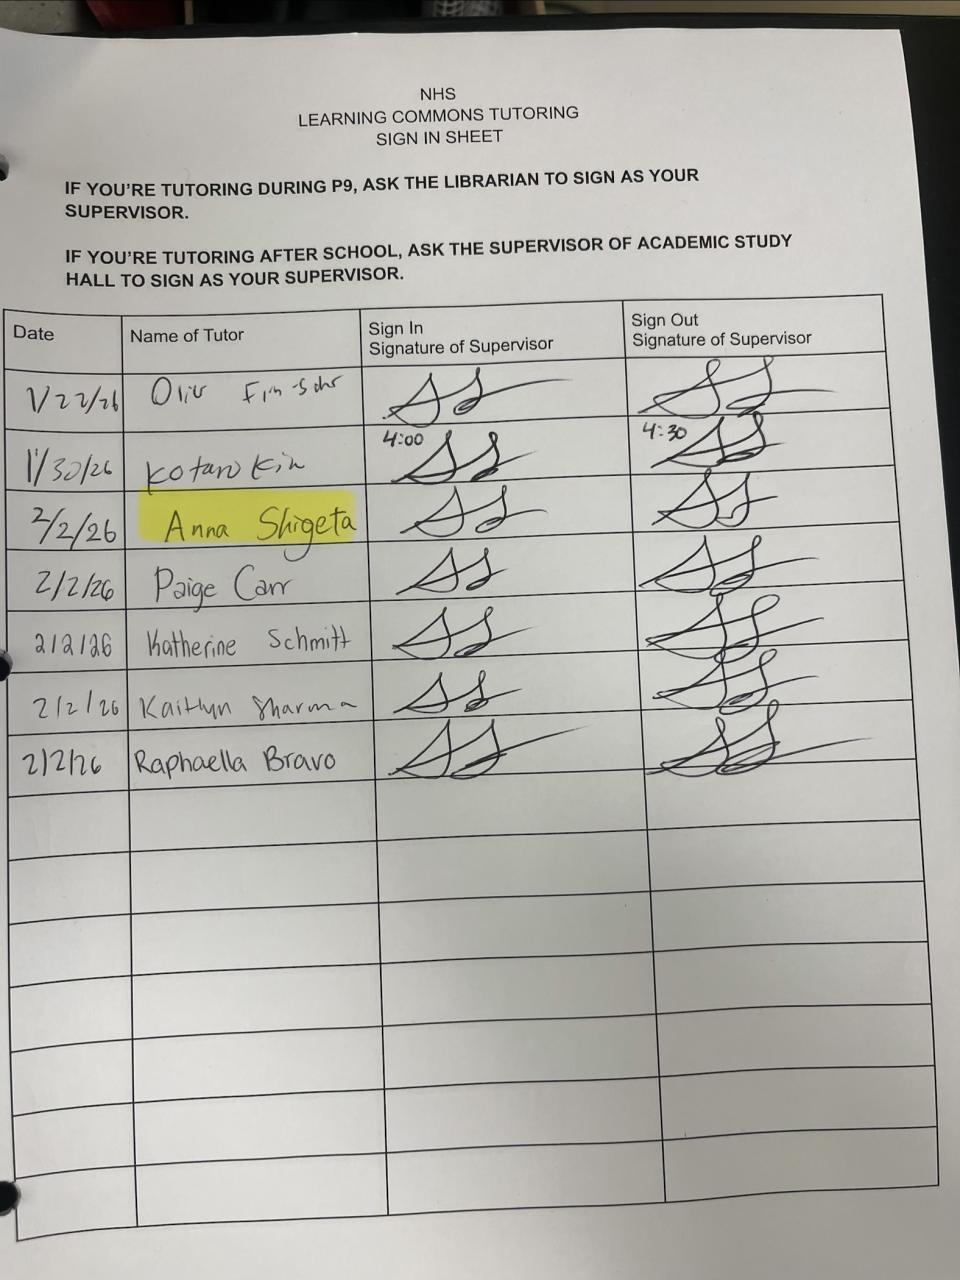 NHS
LEARNING COMMONS TUTORING
SIGN IN SHEET
IF YOU'RE TUTORING DURING P9, ASK THE LIBRARIAN TO SIGN AS YOUR
SUPERVISOR.
IF YOU'RE TUTORING AFTER SCHOOL, ASK THE SUPERVISOR OF ACADEMIC STUDY
HALL TO SIGN AS YOUR SUPERVISOR.
Date Name of Tutor Sign In Signature of Supervisor Sign Out Signature of Supervisor
1/22/26
1/30/26 Kotaro Kin 4:00 4:30
2/2/26 Anna Shigeta
2/2/26 Paige Carr
2/2/26 Katherine Schmitt
2/2/26 Kaitlyn Sharma
2/2/26 Raphaella Bravo